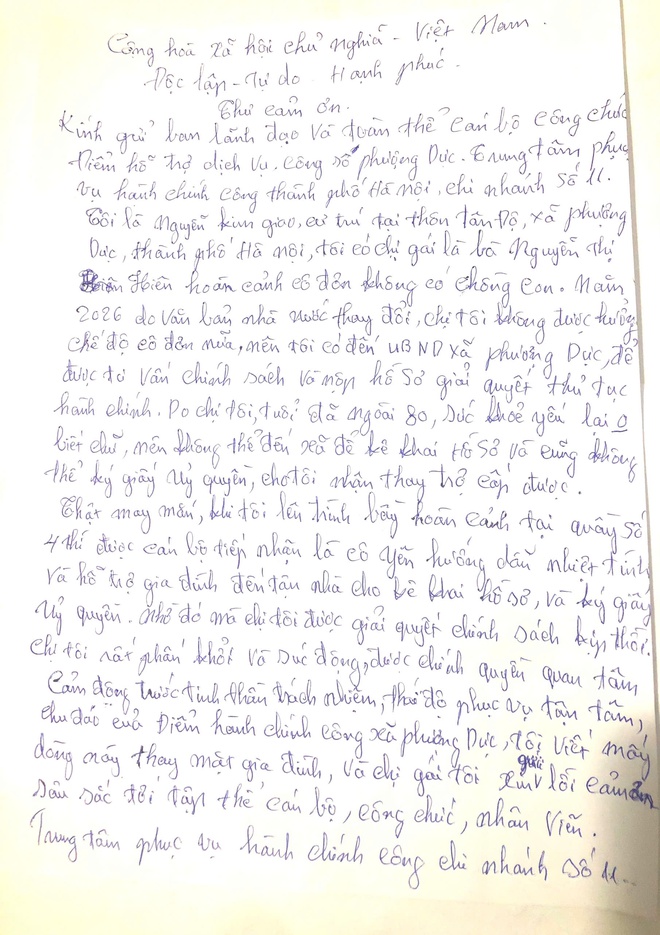 Cộng hoà xã hội chủ nghĩa - Việt Nam.
Độc lập - Tự do. Hạnh phúc.
Thư cảm ơn.
Kính gửi ban lãnh đạo và toàn thể cán bộ công chức
Điểm hỗ trợ dịch vụ. công số phượng Dực. Trung tâm phục
vụ hành chính công thành phố Hà nội, chi nhánh số 11.
Tôi là Nguyễn kim giao, cư trú tại thôn tân Độ, xã phượng
Dực, thành phố Hà nội, tôi có chị gái là bà Nguyễn Thị
Hiên hoàn cảnh cô đơn không có chồng con. Năm
2026 do văn bản nhà nước thay đổi, chị tôi không được hưởng
chế độ cô đơn nữa, nên tôi có đến UBND xã phượng Dực, để
được tư vấn chính sách và nộp hồ sơ giải quyết thủ tục
hành chính. Do chị tôi, tuổi đã ngoài 80, sức khoẻ yếu lại 0
biết chữ, nên không thể đến xã để kê khai hồ sơ và cũng không
thể ký giấy uỷ quyền, cho tôi nhận thay trợ cấp được.
Thật may mắn, khi tôi lên trình bầy hoàn cảnh tại quầy số
4 thì được cán bộ tiếp nhận là cô yến hướng dẫn nhiệt tình
và hỗ trợ gia đình đến tận nhà cho kê khai hồ sơ, và ký giấy
uỷ quyền. nhờ đó mà chị tôi được giải quyết chính sách kịp thời.
chị tôi rất phấn khởi và xúc động, được chính quyền quan tâm
Cảm động trước tinh thần trách nhiệm, thái độ phục vụ tận tâm,
chu đáo của Điểm hành chính công xã phượng Dực, tôi viết mấy
dòng này thay mặt gia đình, và chị gái tôi xin gửi lời cảm ơn
sâu sắc tới tập thể cán bộ, công chức, nhân viên.
Trung tâm phục vụ hành chính công chi nhánh số 11..